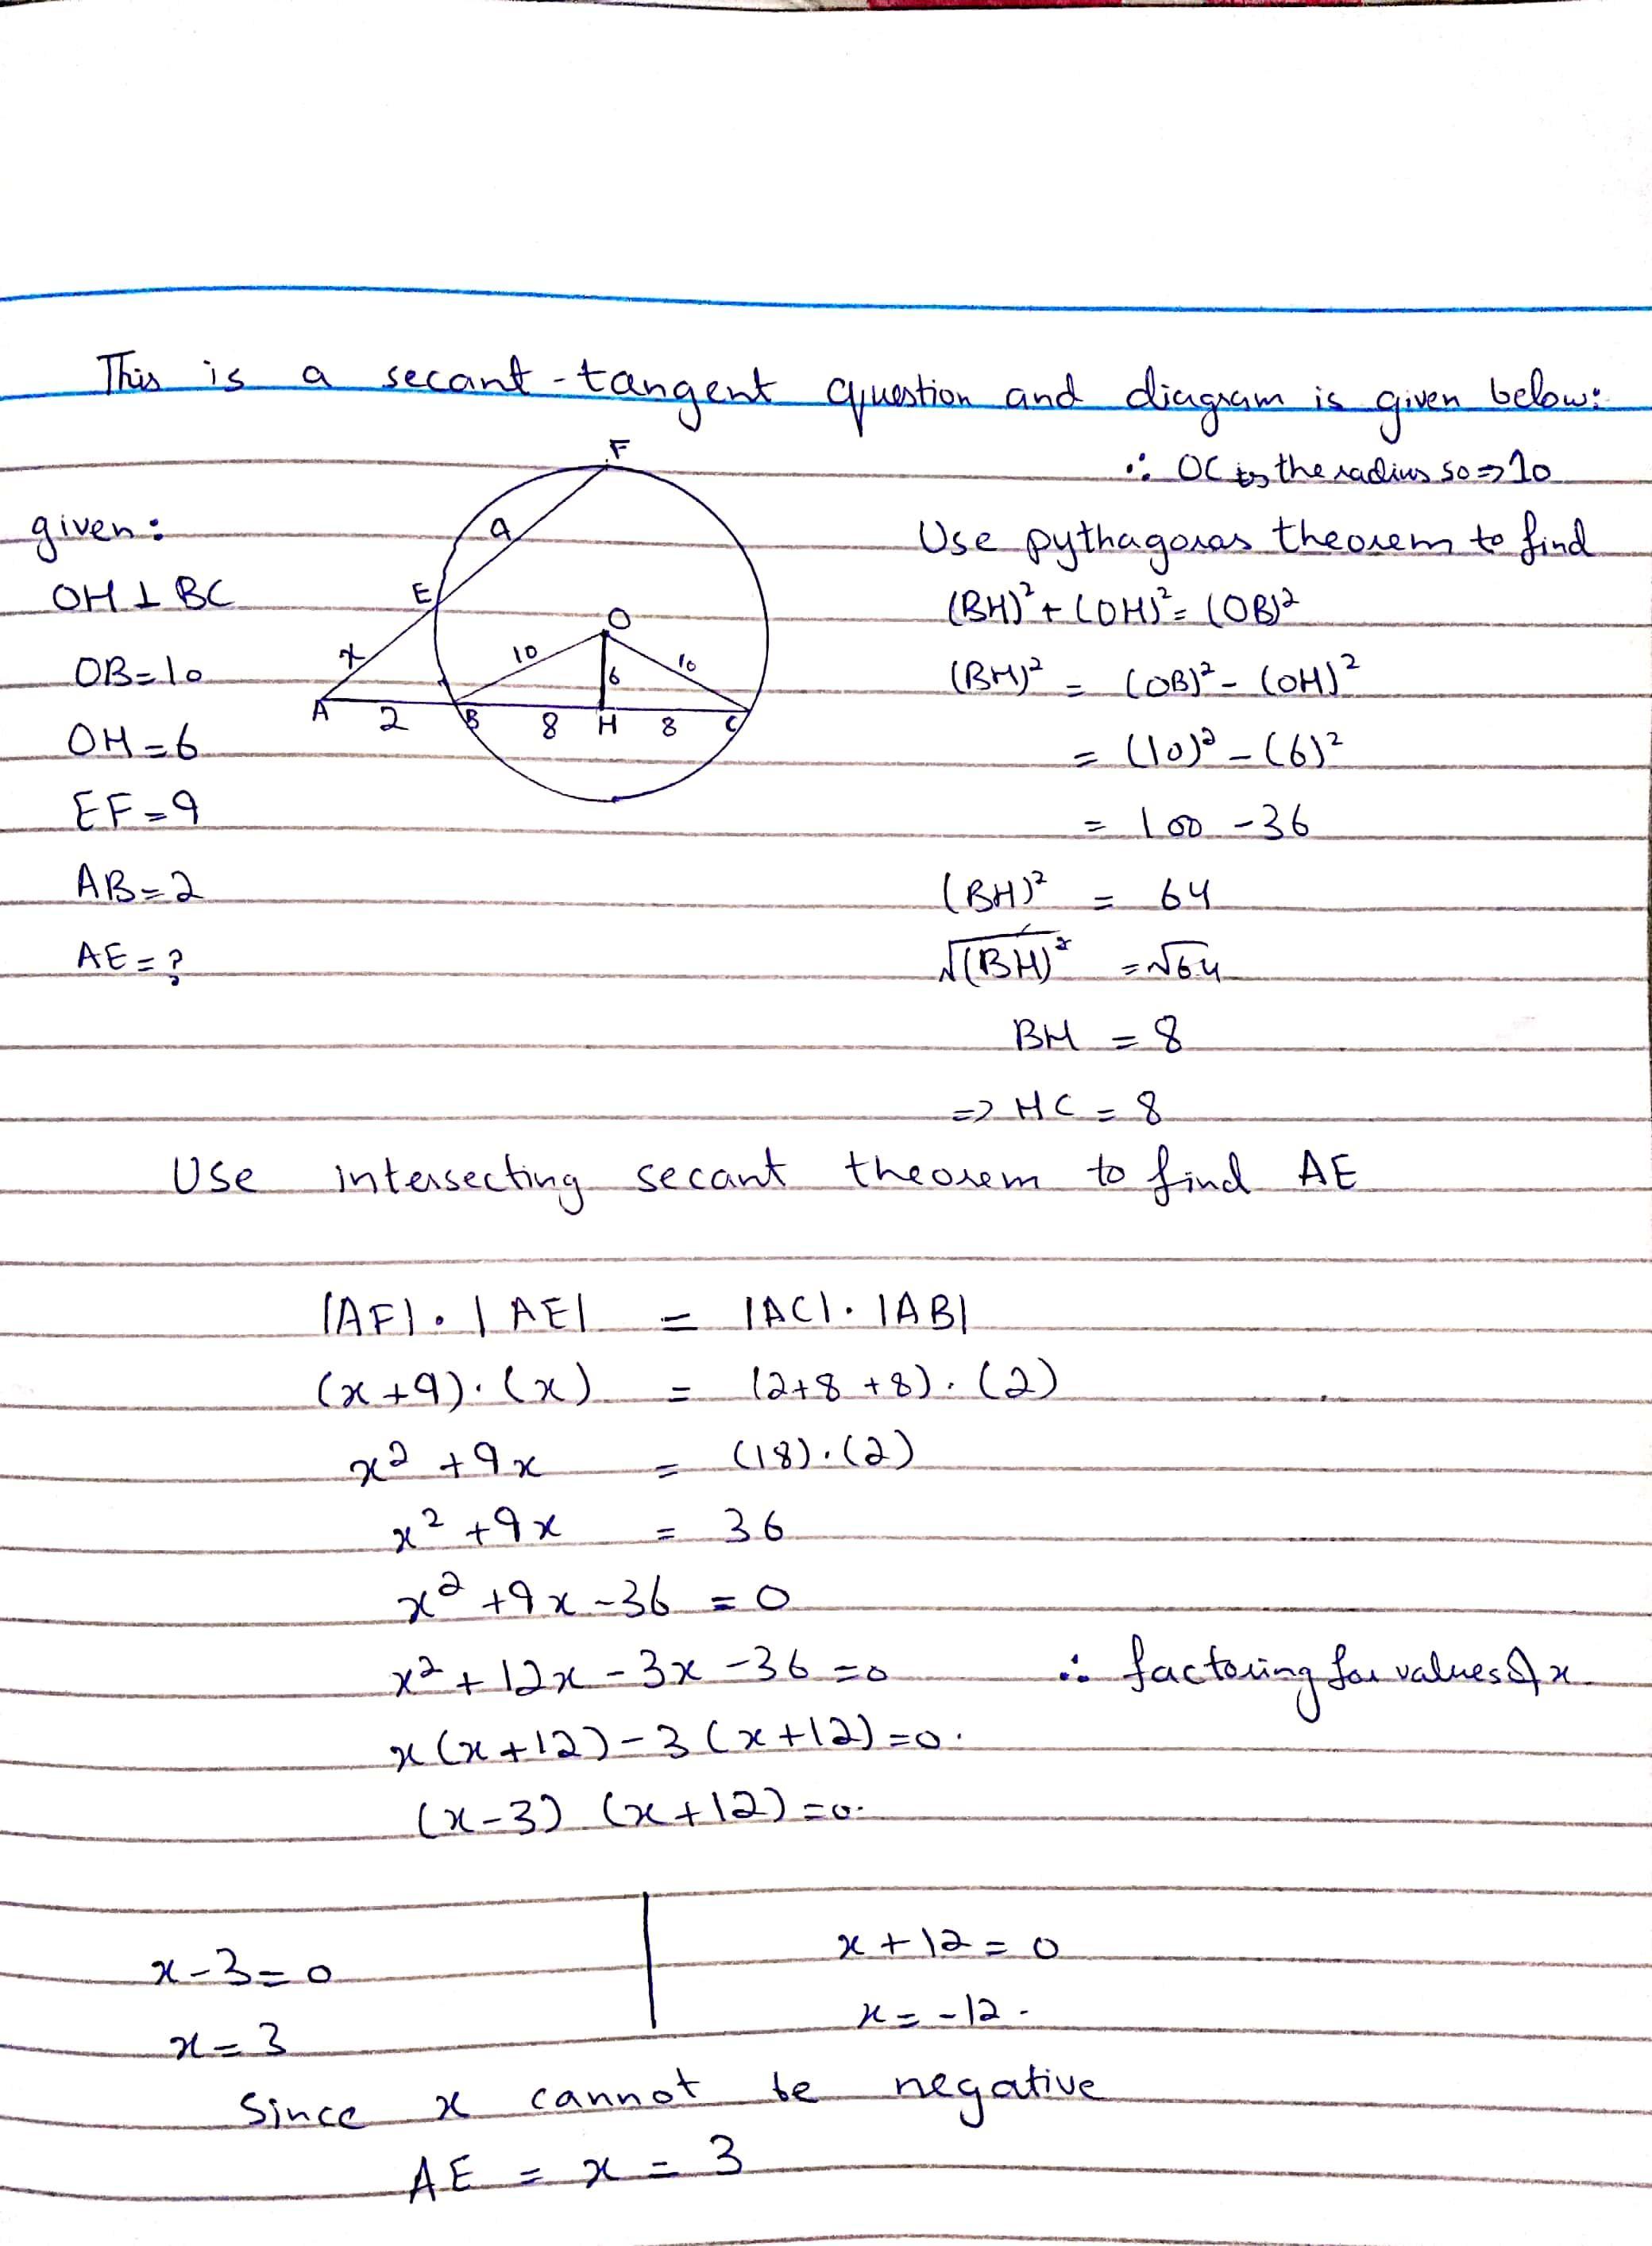 This is a secant-tangent question and diagram is given below:
given:
OH ⊥ BC
OB=10
OH=6
EF=9
AB=2
AE=?
F
9
E
O
x
10
10
6
A
2
B
8
H
8
C
∵ OC is the radius so ⇒ 10
Use pythagoras theorem to find
(BH)² + (OH)² = (OB)²
(BH)² = (OB)² - (OH)²
= (10)² - (6)²
= 100 - 36
(BH)² = 64
√(BH)² = √64
BH = 8
=> HC = 8
Use intersecting secant theorem to find AE
|AF| . |AE| = |AC| . |AB|
(x+9).(x) = (2+8+8).(2)
x² + 9x = (18).(2)
x² + 9x = 36
x² + 9x - 36 = 0
x² + 12x - 3x - 36 = 0 ∵ factoring for values of x
x(x+12) - 3(x+12) = 0.
(x-3) (x+12) = 0.
x-3=0
x=3
x+12=0
x=-12.
Since x cannot be negative
AE = x = 3